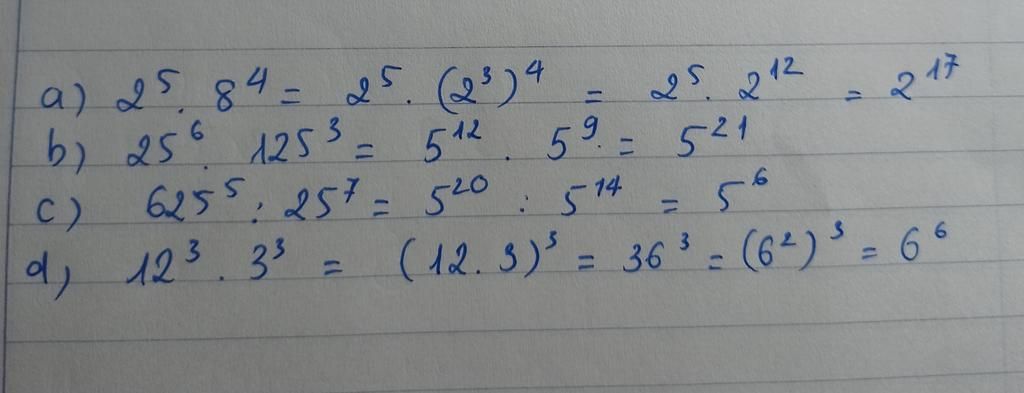 a) 2⁵ . 8⁴ = 2⁵ . (2³)⁴ = 2⁵ . 2¹² = 2¹⁷
b) 25⁶ . 125³ = 5¹² . 5⁹ = 5²¹
c) 625⁵ : 25⁷ = 5²⁰ : 5¹⁴ = 5⁶
d) 12³ . 3³ = (12 . 3)³ = 36³ = (6²)³ = 6⁶